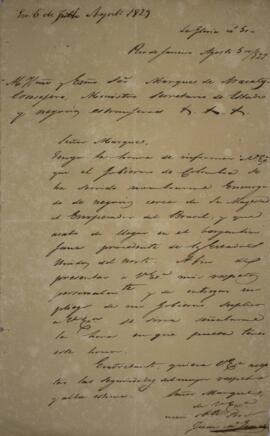 En 6 de Agosto 1829
La Gloria n° 80
Rio de Janeiro Agosto 5 de 1829
Yllmo y Exmo Sor Marques de Aracaty
Consejero, Ministro Secretario de Estado
y negocios estrangeros
Señor Marques,
Tengo la honra de informar á V Exa
que el Gobierno de Colombia
ha servido nombrarme Encargado
de negocios cerca de Su Magestad
el Emperador del Brasil, y que
acabo de llegar en el bergantin
Jane procedente de los Estados
Unidos del Norte. Afin de
presentar a V Exa mis respetos
personalmente y de entregar un
pliego de mi Gobierno suplico
a V Exa se sirva señalarme
la hora en que pueda tener
este honor.
Entretanto, quiera V Exa aceptar
las seguridades del mayor respeto
y alta estima. Señor Marques,
de V Exa